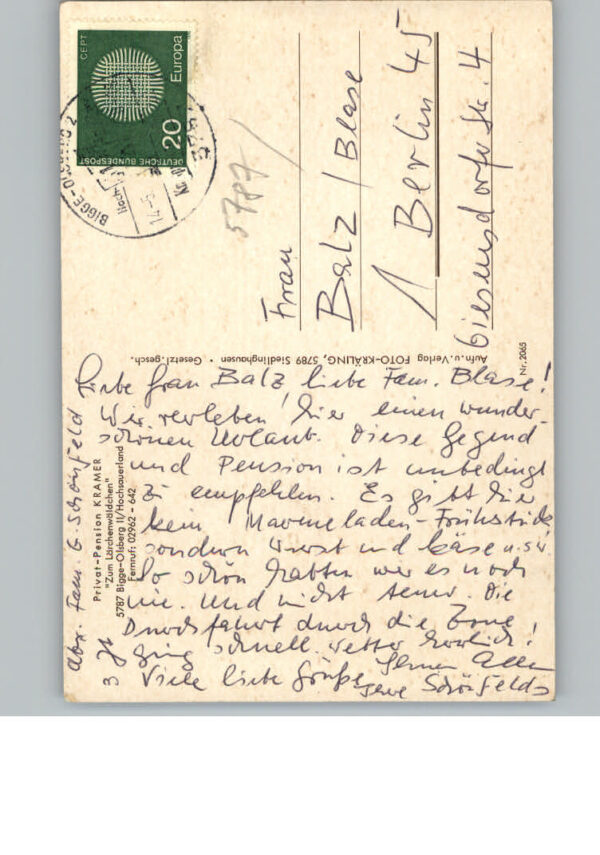 CEPT
Europa
20
DEUTSCHE BUNDESPOST
BIGGE-OLSBERG 2
5787/
Frau
Balz / Blase
1 Berlin 45
Giesensdorfer Str. 4
Aufn. u. Verlag FOTO-KRÄLING, 5789 Siedlinghausen • Gesetzl. gesch.
Nr. 2065
Liebe Frau Balz, liebe Fam. Blase!
Wir verleben hier einen wunder-
schönen Urlaub. Diese Gegend
und Pension ist unbedingt
zu empfehlen. Es gibt hier
kein Marmeladen-Frühstück
sondern Wurst und Käse u.s.w.
So schön hatten wir es noch
nie. Und nicht teuer. Die
Durchfahrt durch die Zone
ging schnell. Wetter herrlich!
Viele liebe Grüße Ihnen Allen
Ihre Schönfelds
Abs. Fam. G. Schönfeld
Privat-Pension KRAMER
"Zum Lärchenwäldchen"
5787 Bigge-Olsberg II/Hochsauerland
Fernruf: 02962 - 642